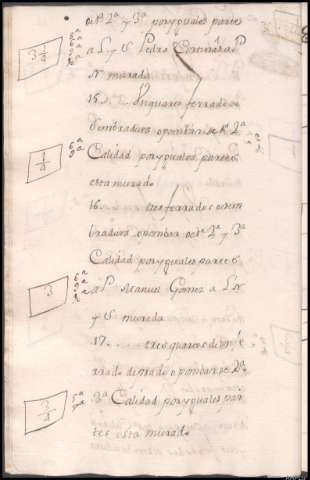 de 1ª 2ª y 3ª por yguales partes
a L. y S Pedro Cortinas a P
N murado
15. Un quarto ferrado de
Sembradura o ponbar de 1ª 2ª
Calidad por yguales partes
esta murado
16. tres ferrados desem
bradura o ponbar de 1ª 2ª y 3ª
Calidad por yguales partes
a P Manuel Gomez a L N
y S mureda
17. tres quartos de un fe
rrado de prado o ponbar de 2ª
3ª Calidad por yguales par
tes esta murado
3 1/4
1/4
3
3/4